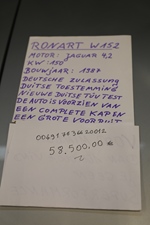 RONART W152
MOTOR: JAGUAR 4,2
KW: 150
BOUWJAAR: 1987
DEUTSCHE ZULASSUNG
DUITSE TOESTEMMING
NIEUWE DUITSE TÜV TEST
DE AUTO IS VOORZIEN VAN
EEN COMPLETE KAP EN
EEN GROTE VOORRUIT
58.500.00 €